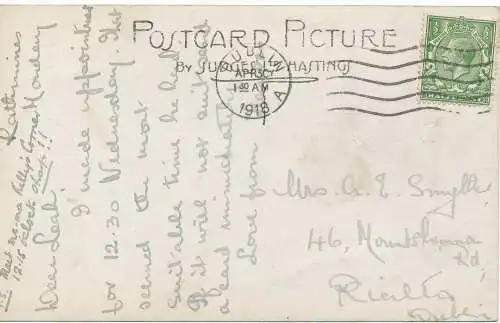 POSTCARD PICTURE
BY JUDGES LTD HASTINGS
DUBLIN
1 30 AM
1918
A
Rathmines
Monday
Dear Leah
I made appointment
for 12.30 Wednesday. That
seemed the most
suitable time he had.
If it will not suit send
a card immediately
Love from
P.S. Meet me Kelly's Corner
12.15 o'clock sharp!!
Mrs. A. E. Smyth,
46, Mountshannon
Rd,
Rialto
Dublin